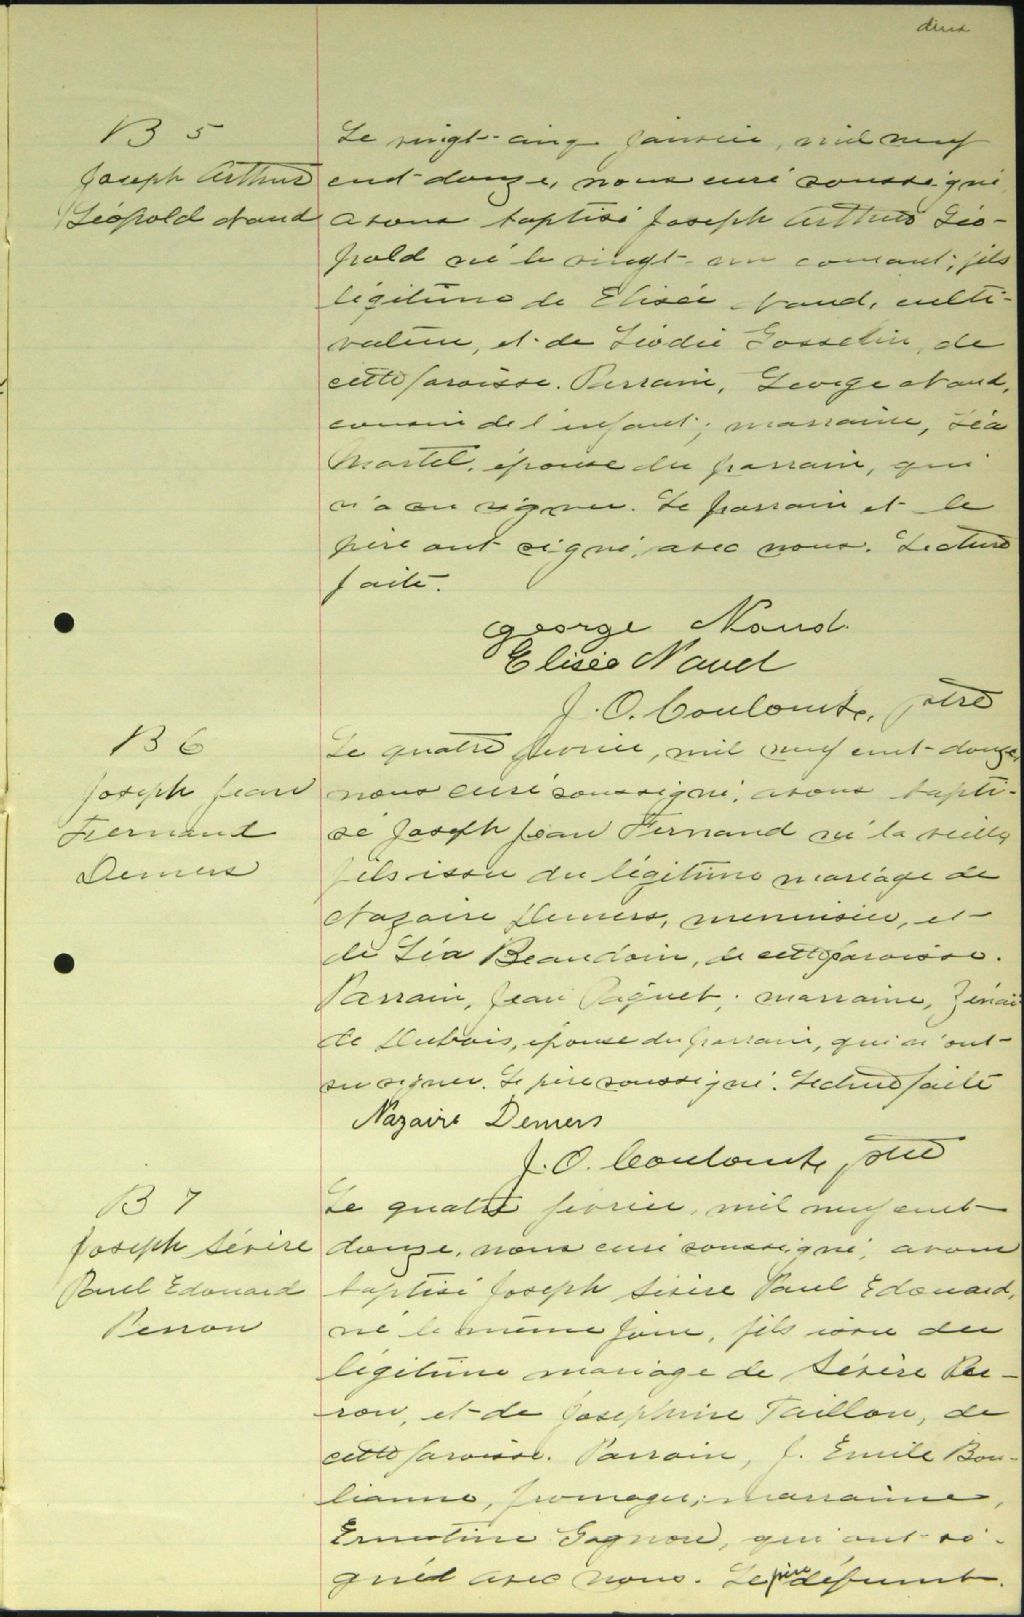 deux
B 5
Joseph Arthur
Léopold Naud
Le vingt-cinq janvier, mil neuf
cent douze, nous curé soussigné
avons baptisé Joseph Arthur Léo-
pold né le vingt-un courant, fils
légitime de Elisée Naud, culti-
vateur, et de Léodie Gosselin, de
cette paroisse. Parrain, George Naud,
cousin de l'enfant; marraine, Léa
Martel, épouse du parrain, qui
n'a su signer. Le parrain et le
père ont signé avec nous. Lecture
faite.
George Naud.
Elisée Naud
J. O. Coulombe, ptre
B 6
Joseph Jean
Fernand
Demers
Le quatre février, mil neuf cent-douze,
nous curé soussigné, avons bapti-
sé Joseph Jean Fernand né la veille
fils issu du légitime mariage de
Nazaire Demers, menuisier, et
de Léa Beaudoin, de cette paroisse.
Parrain, Jean Paquet; marraine, Zénaï
de Dubois, épouse du parrain, qui n'ont
su signer. Le père soussigné. Lecture faite
Nazaire Demers
J. O. Coulombe, ptre
B 7
Joseph Sévère
Paul Edouard
Perron
Le quatre février, mil neuf cent
douze, nous curé soussigné, avons
baptisé Joseph Sévère Paul Edouard,
né le même jour, fils issu du
légitime mariage de Sévère Per-
ron, et de Josephine Taillon, de
cette paroisse. Parrain, J. Emile Bou-
lianne, fromager; marraine,
Ernestine Gagnon, qui ont si-
gnéd avec nous. Le père défunt.